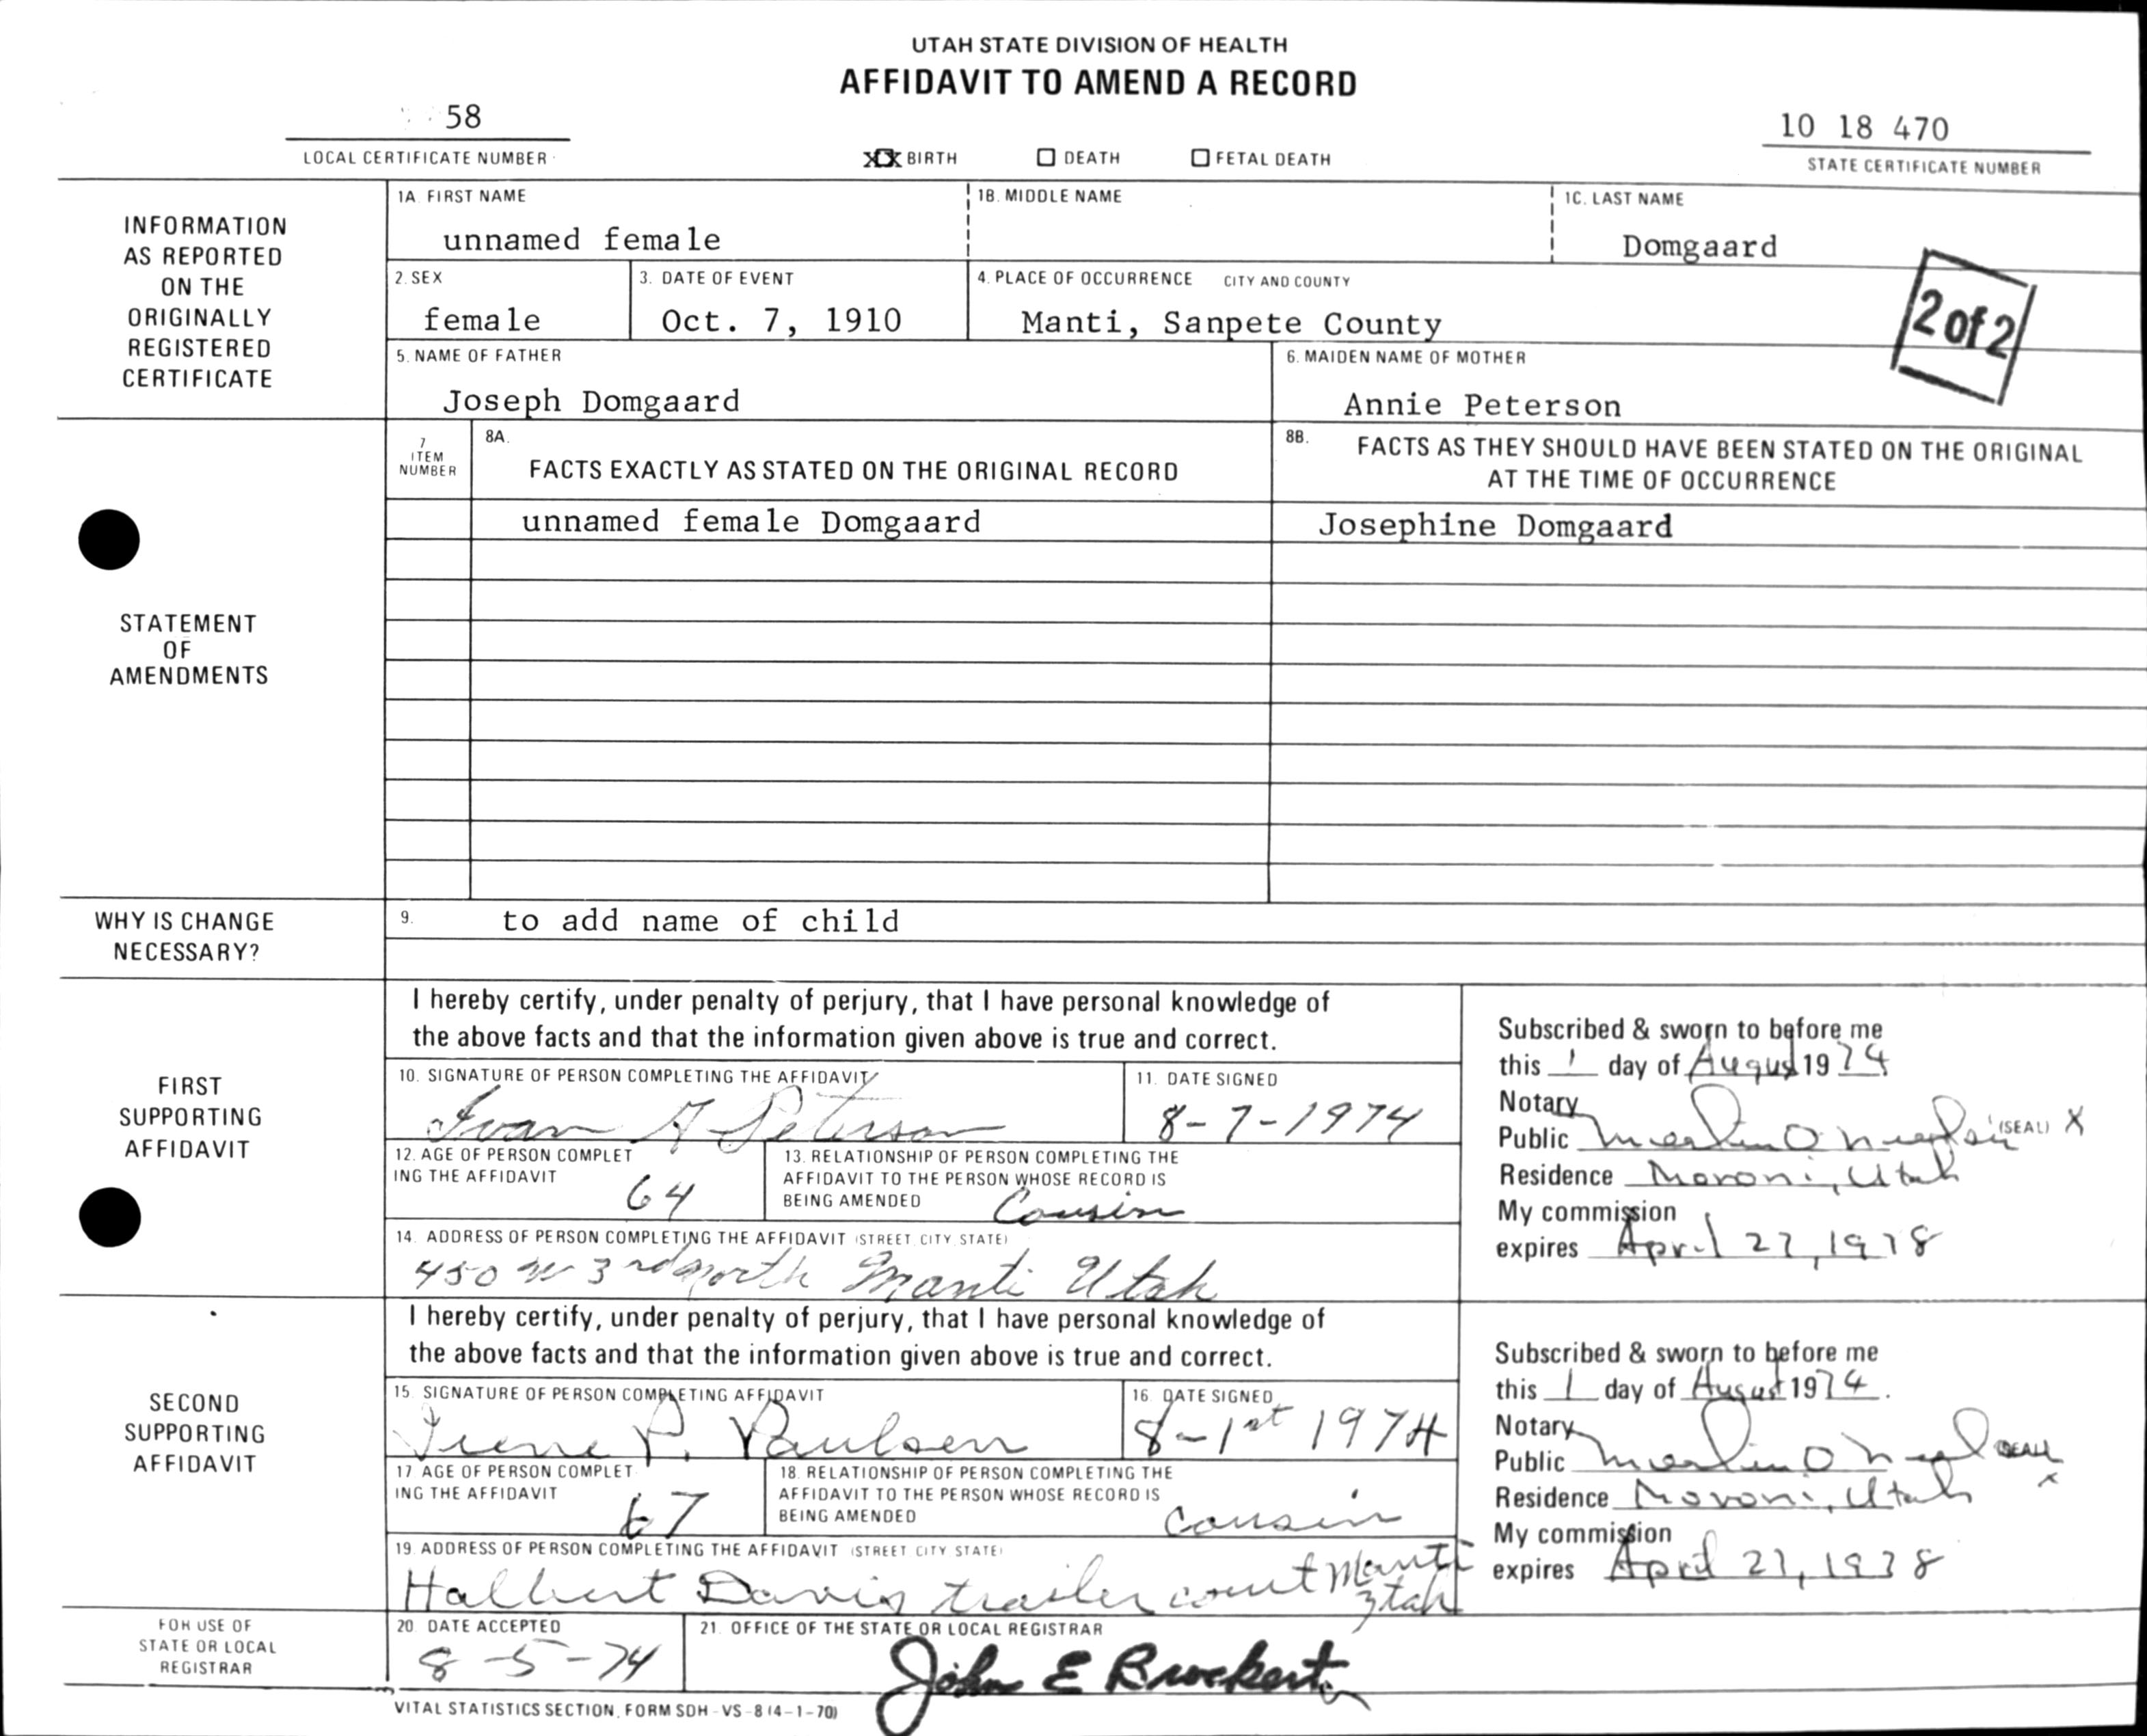 UTAH STATE DIVISION OF HEALTH
AFFIDAVIT TO AMEND A RECORD
58
LOCAL CERTIFICATE NUMBER
XX BIRTH DEATH FETAL DEATH
10 18 470
STATE CERTIFICATE NUMBER
INFORMATION
AS REPORTED
ON THE
ORIGINALLY
REGISTERED
CERTIFICATE
1A. FIRST NAME
unnamed female
1B. MIDDLE NAME
1C. LAST NAME
Domgaard
2. SEX
female
3. DATE OF EVENT
Oct. 7, 1910
4. PLACE OF OCCURRENCE CITY AND COUNTY
Manti, Sanpete County
2 of 2
5. NAME OF FATHER
Joseph Domgaard
6. MAIDEN NAME OF MOTHER
Annie Peterson
STATEMENT
OF
AMENDMENTS
7
ITEM
NUMBER
8A.
FACTS EXACTLY AS STATED ON THE ORIGINAL RECORD
8B. FACTS AS THEY SHOULD HAVE BEEN STATED ON THE ORIGINAL
AT THE TIME OF OCCURRENCE
unnamed female Domgaard
Josephine Domgaard
WHY IS CHANGE
NECESSARY?
9. to add name of child
FIRST
SUPPORTING
AFFIDAVIT
I hereby certify, under penalty of perjury, that I have personal knowledge of
the above facts and that the information given above is true and correct.
10. SIGNATURE OF PERSON COMPLETING THE AFFIDAVIT
Ivan Peterson
11. DATE SIGNED
8-7-1974
12. AGE OF PERSON COMPLET
ING THE AFFIDAVIT
64
13. RELATIONSHIP OF PERSON COMPLETING THE
AFFIDAVIT TO THE PERSON WHOSE RECORD IS
BEING AMENDED Cousin
14. ADDRESS OF PERSON COMPLETING THE AFFIDAVIT (STREET, CITY, STATE)
450 W 3rd north Manti Utah
Subscribed & sworn to before me
this 1 day of August 1974
Notary
Public (SEAL) X
Residence Moroni, Utah
My commission
expires April 27, 1978
SECOND
SUPPORTING
AFFIDAVIT
I hereby certify, under penalty of perjury, that I have personal knowledge of
the above facts and that the information given above is true and correct.
15. SIGNATURE OF PERSON COMPLETING AFFIDAVIT
Irene P. Paulsen
16. DATE SIGNED
8-1st 1974
17 AGE OF PERSON COMPLET
ING THE AFFIDAVIT
67
18. RELATIONSHIP OF PERSON COMPLETING THE
AFFIDAVIT TO THE PERSON WHOSE RECORD IS
BEING AMENDED cousin
19. ADDRESS OF PERSON COMPLETING THE AFFIDAVIT (STREET CITY STATE)
Halbert Davis trailer court Manti
Utah
Subscribed & sworn to before me
this 1 day of August 1974.
Notary
Public (SEAL)
x
Residence Moroni, Utah
My commission
expires April 27, 1978
FOR USE OF
STATE OR LOCAL
REGISTRAR
20. DATE ACCEPTED
8-5-74
21. OFFICE OF THE STATE OR LOCAL REGISTRAR
John E Brockert
VITAL STATISTICS SECTION, FORM SDH-VS-8 (4-1-70)